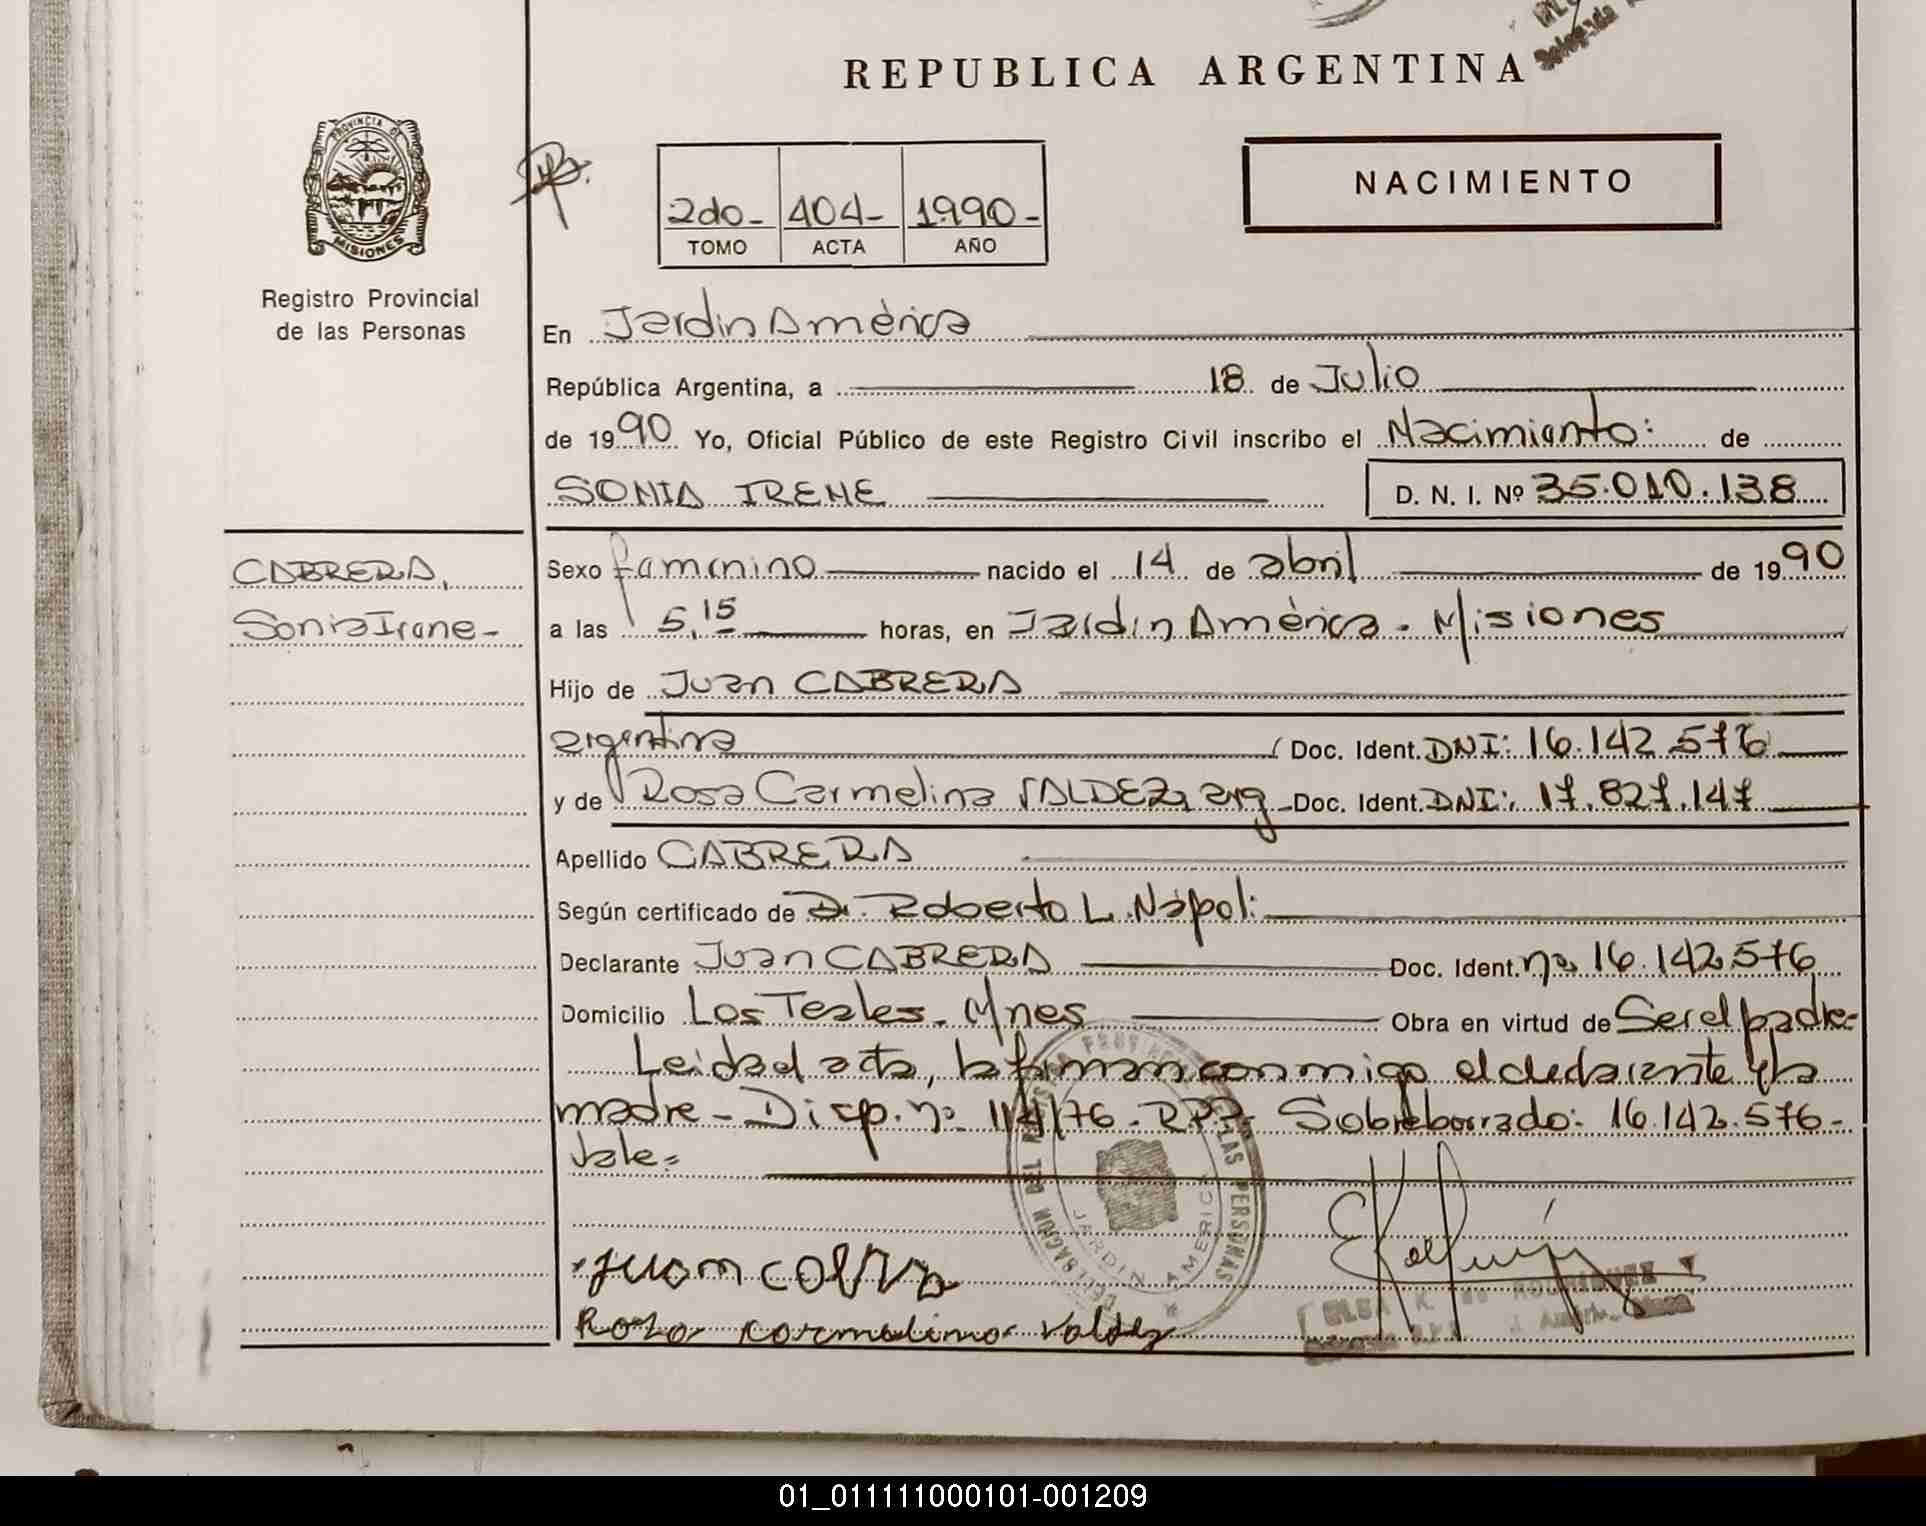 REPUBLICA ARGENTINA
PROVINCIA DE
MISIONES
Registro Provincial
de las Personas
2do- 404- 1990-
TOMO ACTA AÑO
NACIMIENTO
En Jardin América
República Argentina, a 18 de Julio
de 1990 Yo, Oficial Público de este Registro Civil inscribo el Nacimiento: de
SONIA IRENE D. N. I. Nº 35.010.138
CABRERA,
Sonia Irene-
Sexo femenino nacido el 14 de abril de 1990
a las 5,15 horas, en Jardin América - Misiones
Hijo de Juan CABRERA
argentina Doc. Ident. DNI: 16.142.576
y de Rosa Carmelina VALDEZ, arg Doc. Ident. DNI: 17.827.147
Apellido CABRERA
Según certificado de Dr. Roberto L. Nápoli
Declarante Juan CABRERA Doc. Ident. nº 16.142.576
Domicilio Los Teales - Mnes Obra en virtud de Ser el padre-
Leida el acta, la firman conmigo el declarante y la
madre - Disp. nº 114/76 - RPP- Sobreborrado: 16.142.576-
Vale=
REGISTRO PROVINCIAL DE LAS PERSONAS
JARDIN AMERICA
Juan
Rosa carmelina Valdez
ELSA K. de RODRIGUEZ
01_011111000101-001209